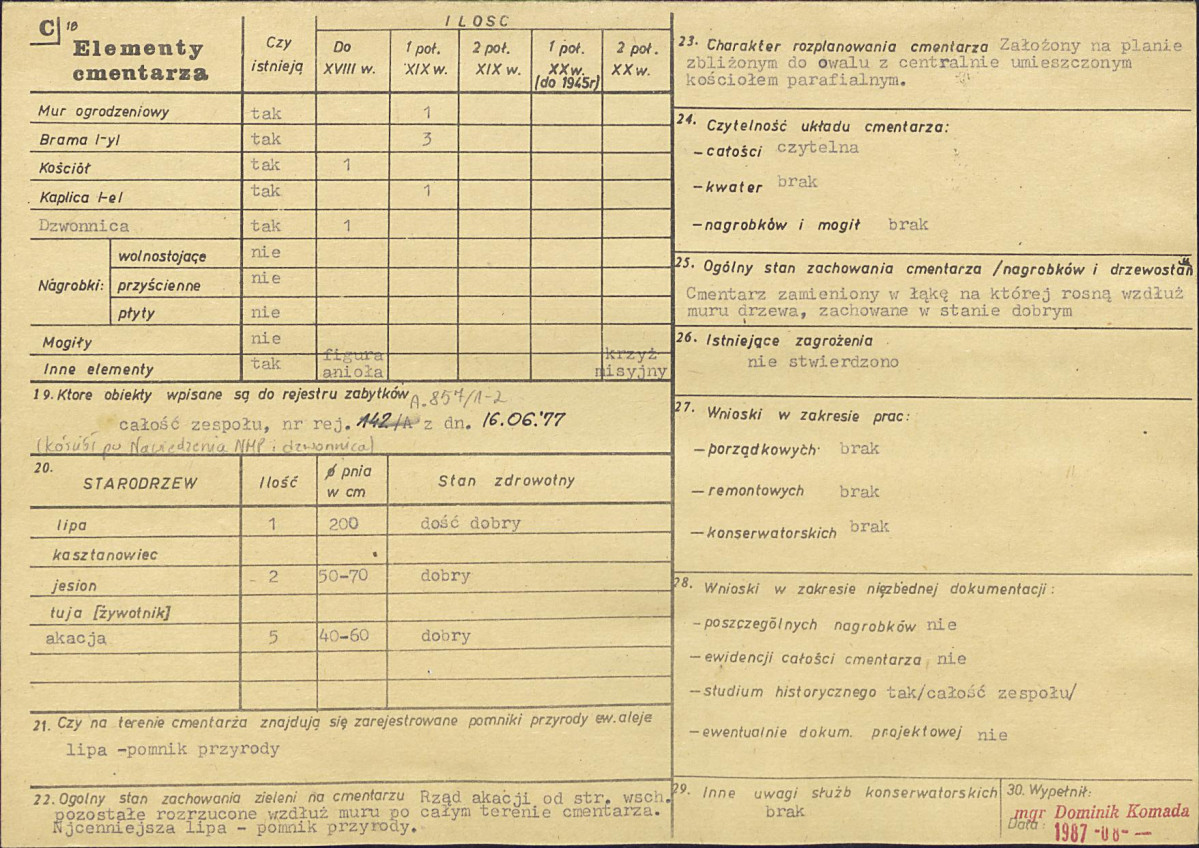 C 18
Elementy
cmentarza
Czy
istnieją
ILOSC
Do
XVIII w.
1 poł.
XIX w.
2 poł.
XIX w.
1 poł.
XX w.
(do 1945r)
2 poł.
XX w.
Mur ogrodzeniowy tak 1
Brama /-y/ tak 3
Kościół tak 1
Kaplica /-e/ tak 1
Dzwonnica tak 1
Nagrobki: wolnostojące nie
przyścienne nie
płyty nie
Mogiły nie
Inne elementy tak figura anioła krzyż misyjny
19. Ktore obiekty wpisane są do rejestru zabytków A-857/1-2
całość zespołu, nr rej. 142/A z dn. 16.06.'77
(kościół pw Nawiedzenia NMP i dzwonnica)
20.
STARODRZEW Ilość ø pnia w cm Stan zdrowotny
lipa 1 200 dość dobry
kasztanowiec
jesion 2 50-70 dobry
tuja [żywotnik]
akacja 5 40-60 dobry
21. Czy na terenie cmentarza znajdują się zarejestrowane pomniki przyrody ew. aleje
lipa -pomnik przyrody
22. Ogolny stan zachowania zieleni na cmentarzu Rząd akacji od str. wsch.
pozostałe rozrzucone wzdłuż muru po całym terenie cmentarza.
Njcenniejsza lipa - pomnik przyrody.
23. Charakter rozplanowania cmentarza Założony na planie
zbliżonym do owalu z centralnie umieszczonym
kościołem parafialnym.
24. Czytelność układu cmentarza:
- całości czytelna
- kwater brak
- nagrobków i mogił brak
25. Ogólny stan zachowania cmentarza /nagrobków i drzewostanu
Cmentarz zamieniony w łąkę na której rosną wzdłuż
muru drzewa, zachowane w stanie dobrym
26. Istniejące zagrożenia
nie stwierdzono
27. Wnioski w zakresie prac:
- porządkowych brak
- remontowych brak
- konserwatorskich brak
28. Wnioski w zakresie niezbednej dokumentacji:
- poszczególnych nagrobków nie
- ewidencji całości cmentarza nie
- studium historycznego tak/całość zespołu/
- ewentualnie dokum. projektowej nie
29. Inne uwagi służb konserwatorskich
brak
30. Wypełnił:
mgr Dominik Komada
Data: 1987 -08- —